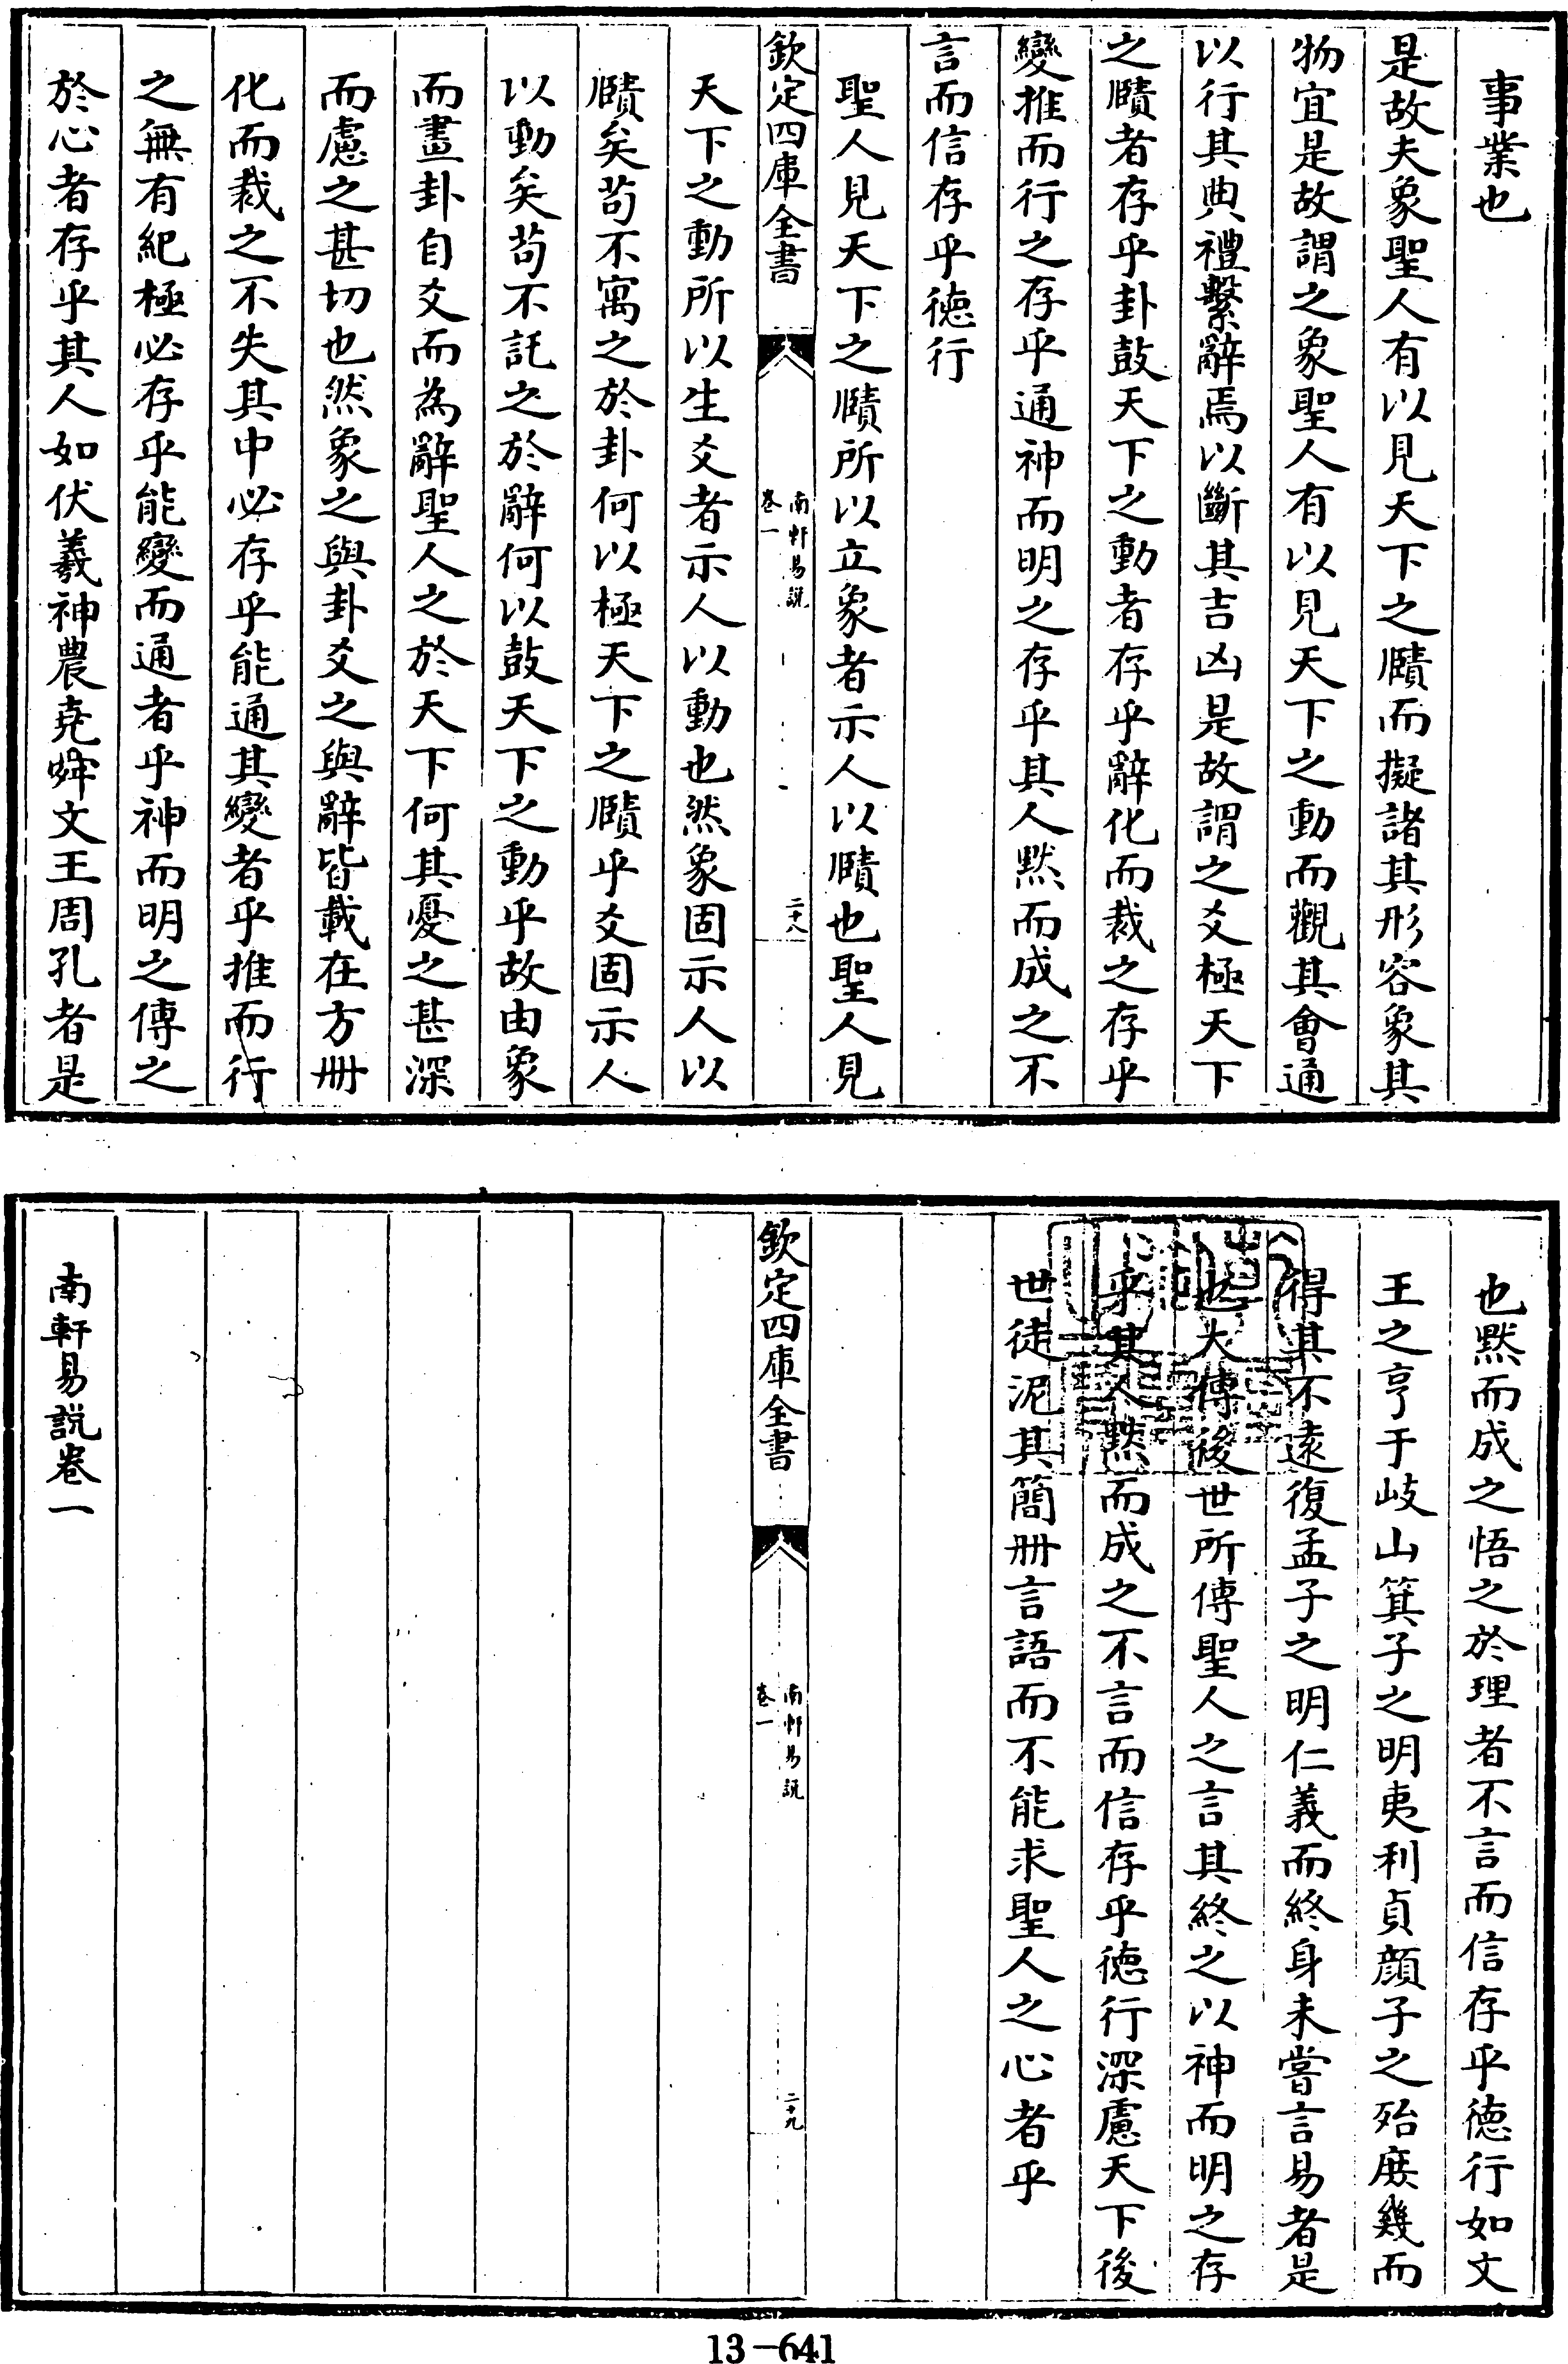 事業也
是故夫象聖人有以見天下之賾而擬諸其形容象其
物宜是故謂之象聖人有以見天下之動而觀其會通
以行其典禮繫辭焉以斷其吉凶是故謂之爻極天下
之賾者存乎卦鼓天下之動者存乎辭化而裁之存乎
變推而行之存乎通神而明之存乎其人黙而成之不
言而信存乎德行
聖人見天下之賾所以立象者示人以賾也聖人見
欽定四庫全書
南軒易說
卷一
二十八
天下之動所以生爻者示人以動也然象固示人以
賾矣苟不寓之於卦何以極天下之賾乎爻固示人
以動矣苟不託之於辭何以鼓天下之動乎故由象
而畫卦自爻而為辭聖人之於天下何其憂之甚深
而慮之甚切也然象之與卦爻之與辭皆載在方冊
化而裁之不失其中必存乎能通其變者乎推而行
之無有紀極必存乎能變而通者乎神而明之傳之
於心者存乎其人如伏羲神農堯舜文王周孔者是
也黙而成之悟之於理者不言而信存乎德行如文
王之亨于岐山箕子之明夷利貞顔子之殆庶幾而
得其不遠復孟子之明仁義而終身未嘗言易者是
也大傳後世所傳聖人之言其終之以神而明之存
乎其人黙而成之不言而信存乎德行深慮天下後
世徒泥其簡冊言語而不能求聖人之心者乎
欽定四庫全書
南軒易說
卷一
二十九
南軒易說卷一
13-641